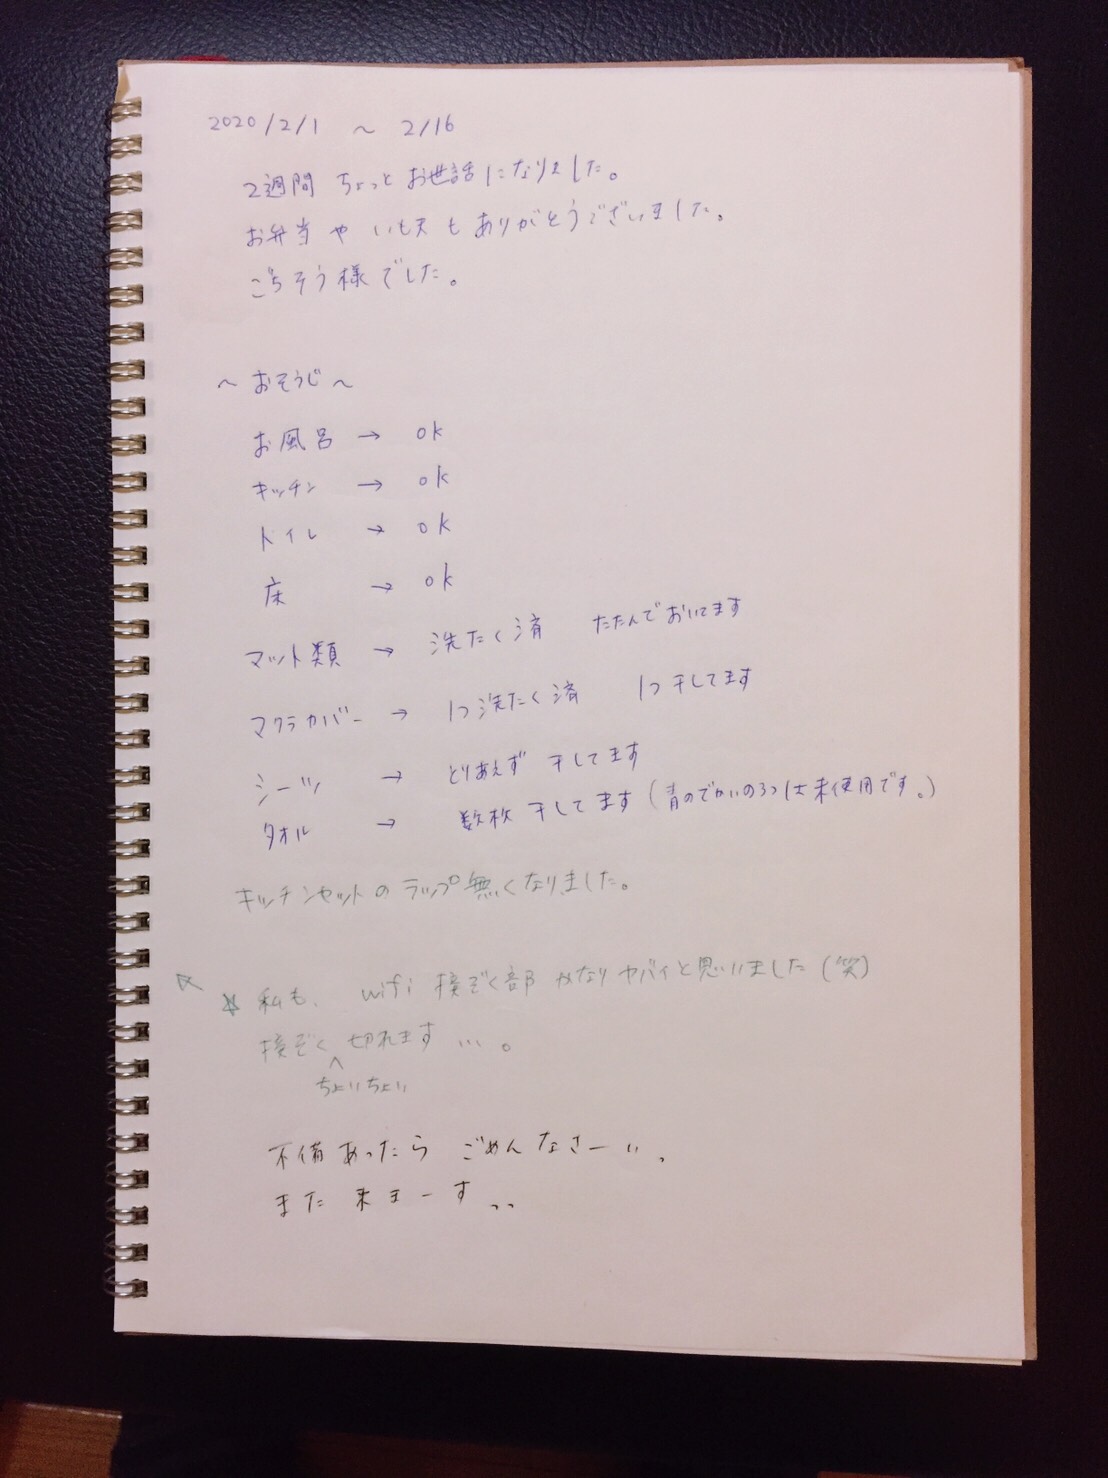 2020/2/1 ～ 2/16
2週間 ちょっと お世話になりました。
お弁当や いも天も ありがとうございました。
ごちそう様でした。
～ おそうじ ～
お風呂 → ok
キッチン → ok
トイレ → ok
床 → ok
マット類 → 洗たく済 たたんでおいてます
マクラカバー → 1つ洗たく済 1つ干してます
シーツ → とりあえず 干してます
タオル → 数枚 干してます (青のでかいの3つは未使用です。)
キッチンセットの ラップ無くなりました。
☆ 私も、 wifi 接ぞく部 かなり ヤバイと思いました (笑)
接ぞく 切れます …。
^
ちょいちょい
不備あったら ごめんなさーい、
また 来まーす、、